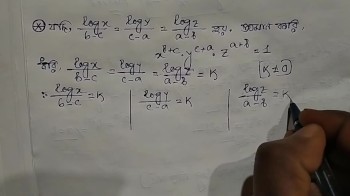 যদি, log x/b-c = log y/c-a = log z/a-b হয়, প্রমাণ করি,
x^b+c · y^c+a · z^a+b = 1
ধরি, log x/b-c = log y/c-a = log z/a-b = K [K ≠ 0]
∴ log x/b-c = K | log y/c-a = K | log z/a-b = K